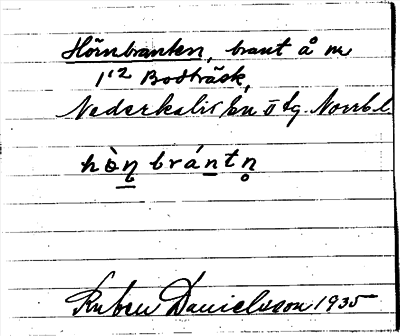 Hörnbranten, brant å m
1¹² Bodträsk,
Nederkalix sn o tg. Norrb. l.
hò̱n̥ brántn̥
Ruben Danielsson 1935